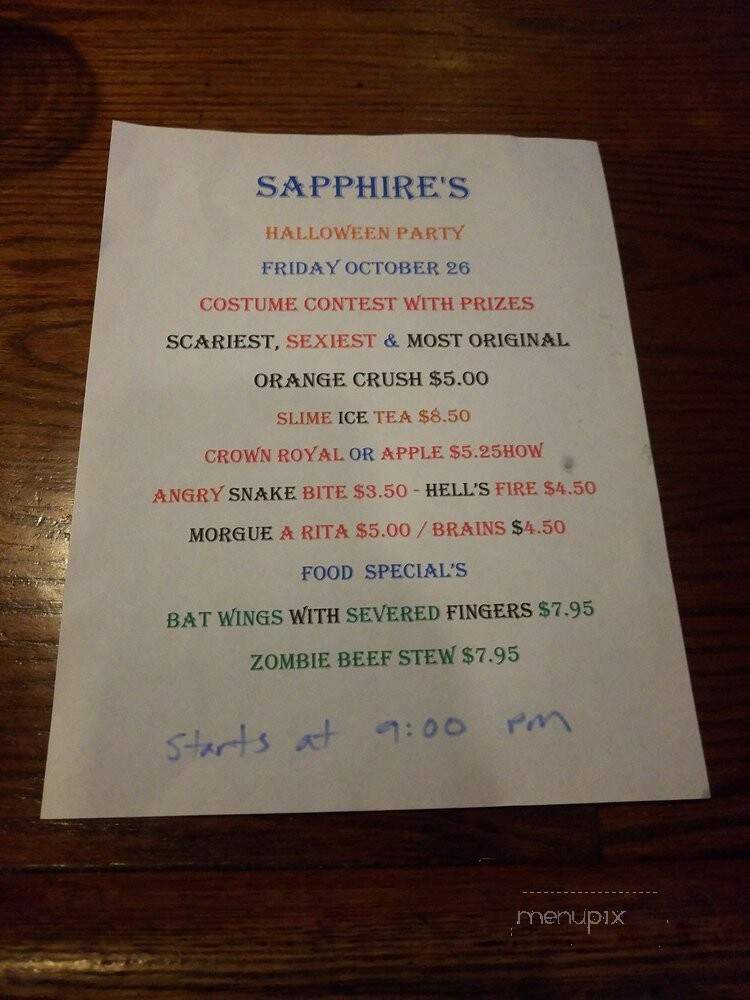 SAPPHIRE'S
HALLOWEEN PARTY
FRIDAY OCTOBER 26
COSTUME CONTEST WITH PRIZES
SCARIEST, SEXIEST & MOST ORIGINAL
ORANGE CRUSH $5.00
SLIME ICE TEA $8.50
CROWN ROYAL OR APPLE $5.25HOW
ANGRY SNAKE BITE $3.50 - HELL'S FIRE $4.50
MORGUE A RITA $5.00 / BRAINS $4.50
FOOD SPECIAL'S
BAT WINGS WITH SEVERED FINGERS $7.95
ZOMBIE BEEF STEW $7.95
Starts at 9:00 pm
menupix